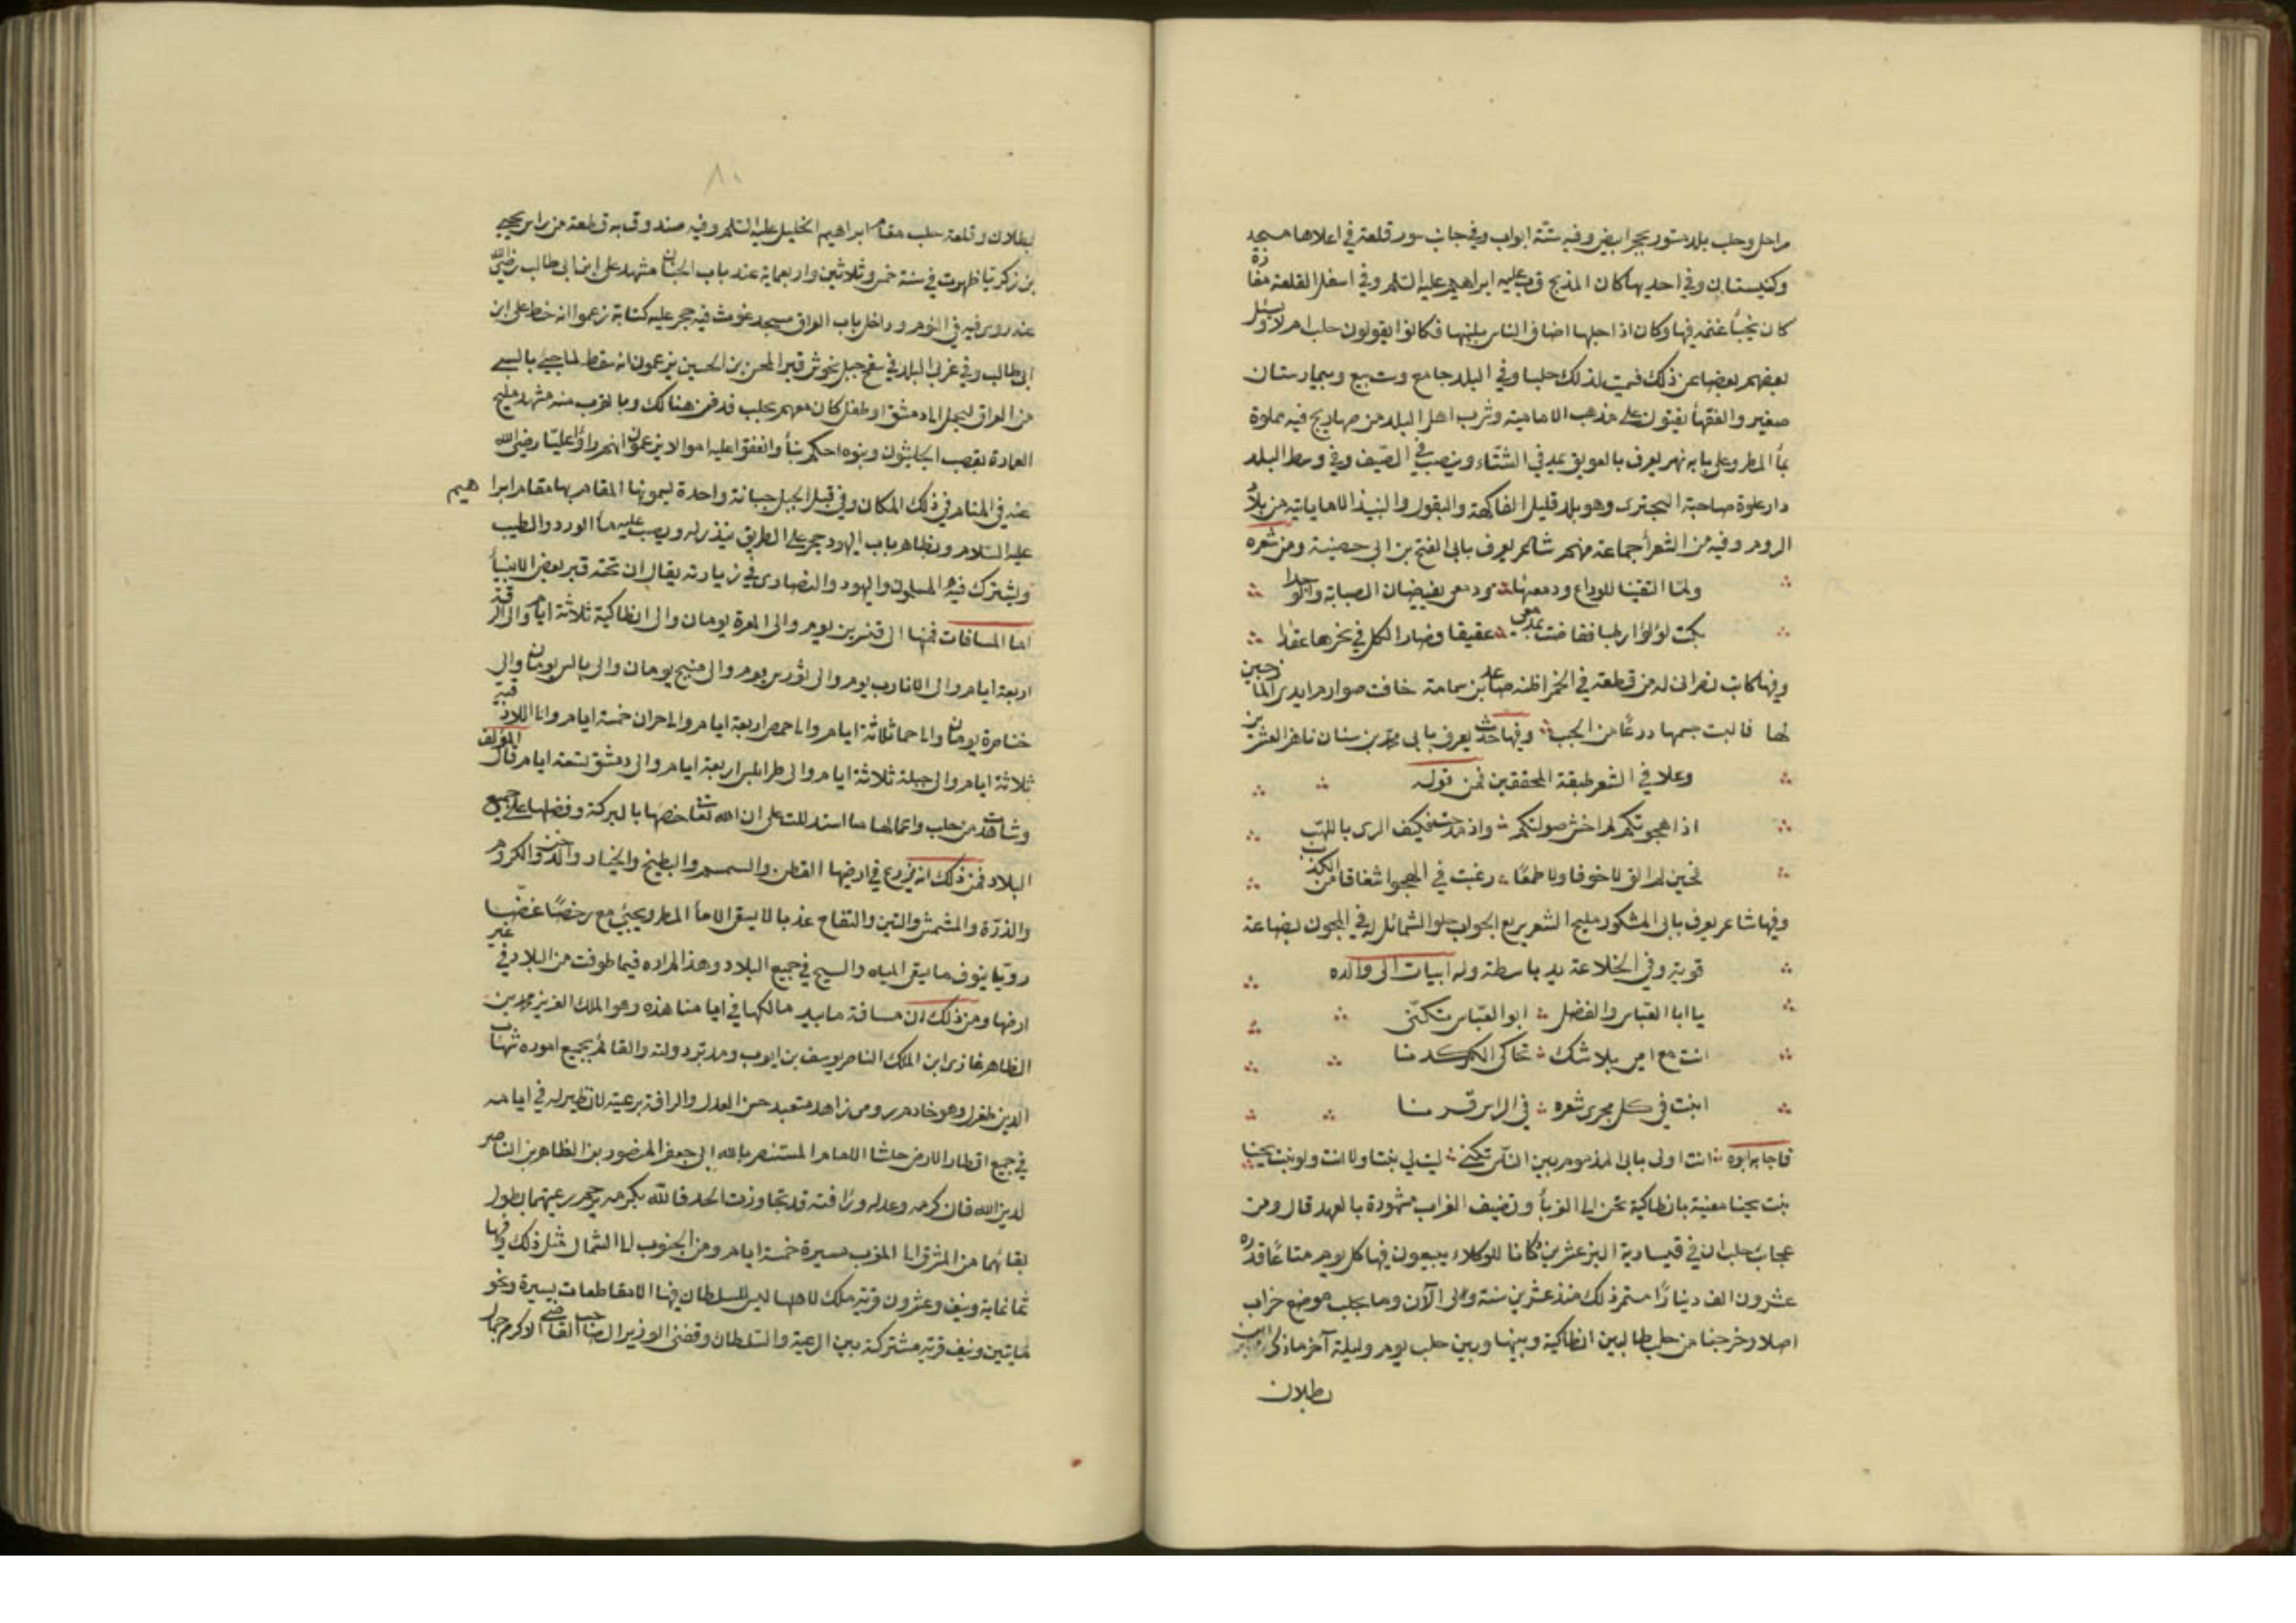 مراحل وحلب بلد مسور بحجر ابيض وفيه ستة ابواب وفي جانب سور قلعة في اعلاها مسجد
وكنيستان وفي احديهما كان المذبح قرب عليه ابراهيم عليه السلم وفي اسفل القلعة مغارة
كان يخبأ غنمه فيها وكان اذا حلبها اضاف الناس بلبنها فكانوا يقولون حلب ام لا ويسئل
بعضهم بعضا عن ذلك فسميت لذلك حلبا وفي البلد جامع وست بيع وبيمارستان
صغير والفقهأ يفتون على مذهب الامامية وشرب اهل البلد من صهاريج فيه مملوة
بمأ المطر وعلى بابه نهر يعرف بالعويق يمد في الشتاء وينضب في الصيف وفي وسط البلد
دار علوة صاحبة البحترى وهو بلد قليل الفاكهة والبقول والنبيذ الا ما ياتيه من بلاد
الروم وفيه من الشعرأ جماعة منهم شاعر يعرف بابى الفتح بن ابى حصينة ومن شعره
ولما التقينا للوداع ودمعها ودمعى يفيضان الصبابة والوجدا
بكت لؤلؤا رطبا ففاضت مدامعى عقيقا فصار الكل في نحرها عقدا
وفيها كاتب نصرانى له من قطعة في الخمر اظنه صاعد بن سمامة خافت صوارم ايدى المازجين
لها فالبست جسمها درعا من الحبب وفيها حدث يعرف بابى محمد بن سنان ناهز العشرين
وعلا في الشعر طبقة المحققين فمن قوله
اذا هجوتكم لم اخش صولتكم واذ مدحت فكيف الرى باللهب
فحين لم الق لا خوفا ولا طمعا رغبت في الهجو اشفاقا من الكذب
وفيها شاعر يعرف بابى المشكور مليح الشعر سريع الجواب حلو الشمائل له في المجون بضاعة
قوية وفي الخلاعة يد باسطة وله ابيات الى والده
يا ابا العباس والفضل ابو العباس تكنى
انت مع امى بلا شك تحاكى الكركدنا
انبت في كل مجرى شعره في الراس قرنا
فاجابه ابوه انت اولى بابى المذموم بين الناس تكنى ليت لي بنتا ولا انت ولو بنت يحنا
بنت يحنا مغنية بانطاكية تحن الى الغربأ وتضيف الغراب مشهورة بالعهد قال ومن
عجائب حلب ان في قيسارية البز عشرين دكانا للوكلاء يبيعون فيها كل يوم متاعا قدره
عشرون الف دينارا مستمر ذلك منذ عشرين سنة والى الآن وما بحلب موضع خراب
اصلا وخرجنا من حلب طالبين انطاكية وبينها وبين حلب يوم وليلة آخر ما ذكر ابن
بطلان
٨٠
بطلان وقلعة حلب مقام ابراهيم الخليل عليه السلم وفيه صندوق به قطعة من راس يحيى
بن زكريا ظهرت في سنة خمس وثلاثين واربعماية عند باب الجنان مشهد على ابن ابى طالب رضى الله
عنه روى فيه في النوم وداخل باب العراق مسجد غوث فيه حجر عليه كتابة زعموا انه خط على ابن
ابى طالب وفي غربى البلد في سفح جبل جوشن قبر المحسن بن الحسين يزعمون انه سقط لما جئ بالسبى
من العراق ليحمل الى دمشق او طفل كان معهم بحلب فدفن هنالك وبالقرب منه مشهد مليح
العمارة تعصب الحلبيون وبنوه احكم بنأ وانفقوا عليه اموالا يزعمون انهم راؤا عليا رضى الله
عنه في المنام في ذلك المكان وفي قبلى الجبل جبانة واحدة يسمونها المقام بها مقام ابراهيم
عليه السلام وبظاهر باب اليهود حجر على الطريق ينذر له ويصب عليه مأ الورد والطيب
ويشترك فيه المسلمون واليهود والنصارى في زيارته يقال ان تحته قبر بعض الانبيأ
اما المسافات فمنها الى قنسرين يوم والى المعرة يومان والى انطاكية ثلاثة ايام والى الرقة
اربعة ايام والى الاثارب يوم والى توزين يوم والى منبج يومان والى بالس يومان والى
خناصرة يومان والى حما ثلاثة ايام والى حمص اربعة ايام والى حران خمسة ايام والى اللاذقية
ثلاثة ايام والى جبلة ثلاثة ايام والى طرابلس اربعة ايام والى دمشق تسعة ايام قال المؤلف
وشاهدت من حلب واعمالها ما استدللت على ان الله تعا خصها بالبركة وفضلها على جميع
البلاد فمن ذلك انه يزرع في ارضها القطن والسمسم والبطيخ والخيار والدخن والكروم
والذرة والمشمش والتين والتفاح عذبا لا يسقى الا مأ المطر ويجئ مع رخصا غضا
رويا يفوق ما يسقى المياه والسيح في جميع البلاد وهذا لم اره فيما طوفت من البلاد في غير
ارضها ومن ذلك ان مسافة ما بيد مالكها في ايامنا هذه وهو الملك العزيز محمد بن
الظاهر غازى ابن الملك الناصر يوسف بن ايوب ومدبر دولته والقائم بجميع اموره شهاب
الدين طغرل وهو خادم رومى زاهد متعبد حسن العدل والرافة برعيته لا نظير له في ايامه
في جميع اقطار الارض حاشا الامام المستنصر بالله ابى جعفر المنصور بن الظاهر بن الناصر
لدين الله فان كرمه وعدله ورافته قد تجاوزت الحد فالله بكرمه يرحم رعيتهما بطول
بقائهما من المشرق الى المغرب مسيرة خمسة ايام ومن الجنوب الى الشمال مثل ذلك وفيها
ثمانماية ونيف وعشرون قرية ملك لاهلها ليس للسلطان فيها الا مقاطعات يسيرة ونحو
مايتين ونيف قرية مشتركة بين الرعية والسلطان وقفنى الوزير الصاحب القاضى الاكرم جمال